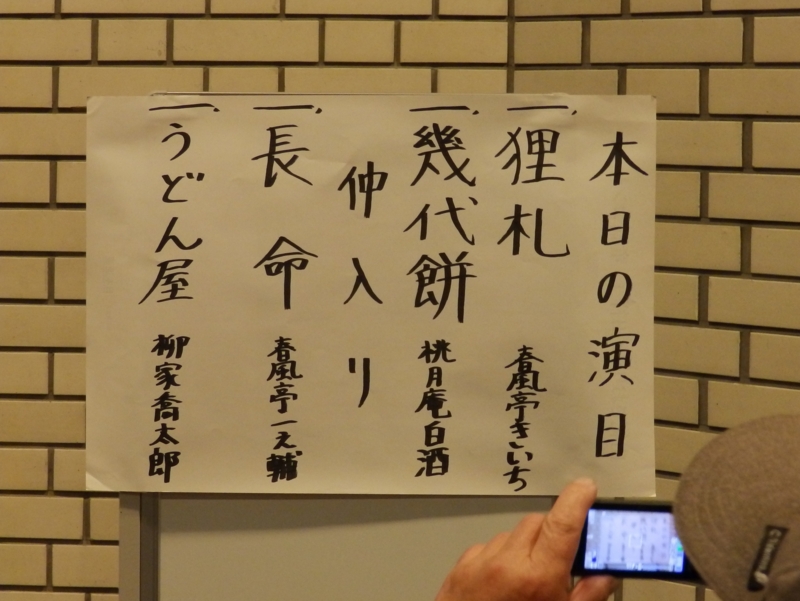 本日の演目
一、狸札 春風亭きいち
一、幾代餅 桃月庵白酒
仲入り
一、長命 春風亭一之輔
一、うどん屋 柳家喬太郎